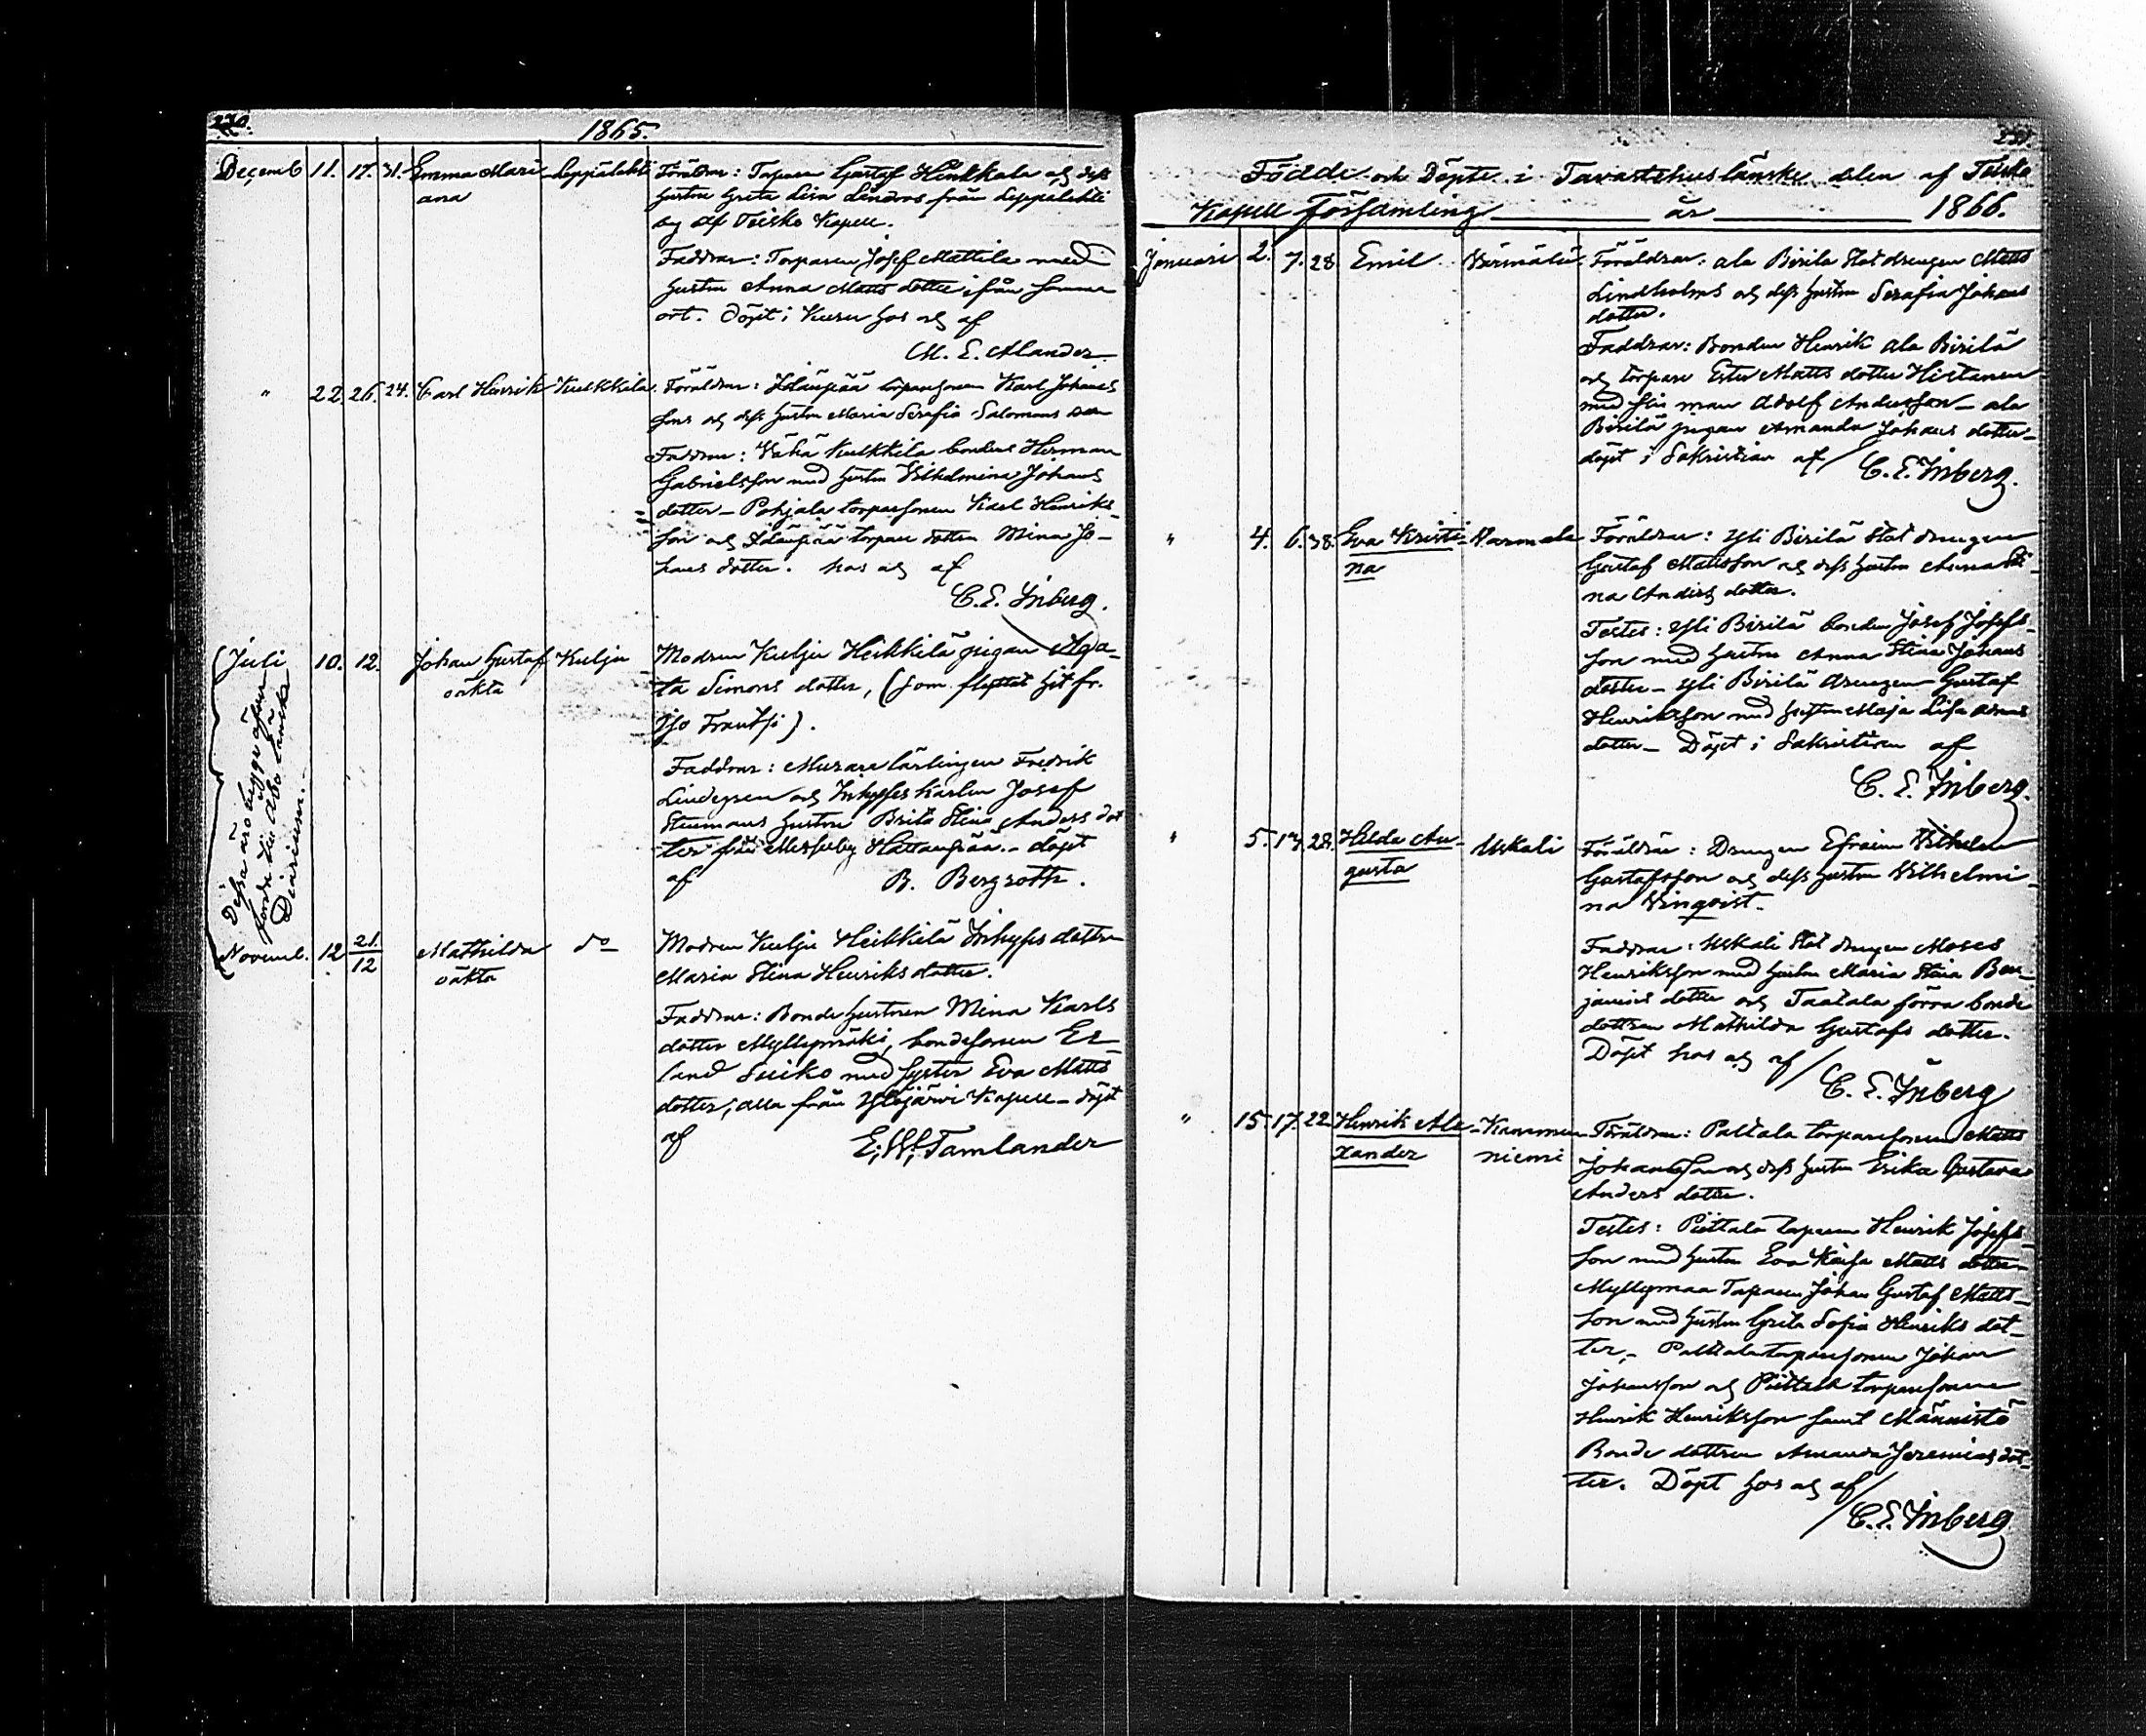 270.
1865.
Decemb 11. 17. 31. Emma Mari- Leppälahti Föräldrar: Torparen Gustaf Heikkala och dess
ana hustru Greta Lisa Lindroos från Leppälahti
by af Teisko Kapell.
Faddrar: Torparen Josef Mattila med
hustru Anna Matts dotter ifrån samma
ort. Döpt i Kuru hos och af
M. E. Alander
" 22. 26. 24. Carl Henrik Kulkkila. Föräldrar: torparesonen Karl Johans
son och dess hustru Maria Serafia Salomons
Faddrar: Vähä Kulkkila bonden Herman
Gabrielsson med hustru Vilhelmina Johans
dotter – Pohjala torparesonen Karl Henriks-
son och torpare dottren Mina Jo-
hans dotter. hos och af
C. E. Inberg.
Juli 10. 12. Johan Gustaf Kulju Modren Kulju Heikkilä pigan Aga-
oäkta ta Simons dotter, (som flyttat hit fr.
Iso Frantsi).
Faddrar: Murare lärlingen Fredrik
Lindegren och Inhyses karlen Josef
Stenmans hustru Brita Stina Anders dot
ter från Messuby Hattanpää. – döpt
af B. Bergroth.
Dessa äro bägge äfven
förda till Åbo länska
Diarium.
Novemb. 12 21/12 Mathilda do Modren Kulju Heikkilä Inhyses dottren
oäkta Maria Stina Henriks dotter.
Faddrar: Bonde hustrun Mina Karls
dotter Myllymäki, bondesonen Er-
land Suiko med syster Eva Matts
dotter, alla från Ylöjärvi Kapell – döpt
af E. W. Tamlander
Födde och Döpte i Tavastehuslänske delen af Teisko
Kapell Församling år 1866.
Januari 2. 7. 28. Emil Värmälä. Föräldrar: ala Birilä Statdrengen Matts
Lindholms och dess hustru Serafia Johans
dotter.
Faddrar: Bonden Henrik Ala Birilä
och torpare Ester Matts dotter Hietanen
med sin man Adolf Andersson – ala
Birilä pigan Amanda Johans dotter –
döpt i Sakristian af C. E. Inberg.
" 4. 6. 38. Eva Kristi- Varmala Föräldrar: Yli Birilä Stat drengen
na Gustaf Mattsson och dess hustru Anna Sti-
na Anders dotter.
Testes: Yli Birilä bonden Josef Josefs-
son med hustru Anna Stina Johans
dotter – Yli Birilä drengen Gustaf
Henriksson med hustru Maja Lisa
dotter – Döpt i Sakristian af
C. E. Inberg.
" 5. 14. 28. Hilda Au- Uskali Föräldrar: Drengen Efraim Vilhelm
gusta Gustafsson och dess hustru Vilhelmi-
na Vinqvist.
Faddrar: Uskali Stat drengen Moses
Henriksson med hustru Maria Stina Ben-
jamins dotter och Taatala förra bonde
dottren Mathilda Gustafs dotter.
Döpt hos och af
C. E. Inberg
" 15. 17. 22. Henrik Ale- Kammen- Föräldrar: Paltala torparesonen Matts
xander niemi Johansson och dess hustru Erika Gustava
Anders dotter.
Testes: Piittala torparen Henrik Josefs-
son med hustru Eva Kaisa Matts dotter –
Myllymaa Torparen Johan Gustaf Matts-
son med hustru Greta Sofia Henriks dot-
ter, – Paltala torparesonen Johan
Johansson och Piittala torparesonen
Henrik Henriksson samt Männistö
Bonde dottren Amanda Jeremias dot-
ter. Döpt hos och af
C. E. Inberg